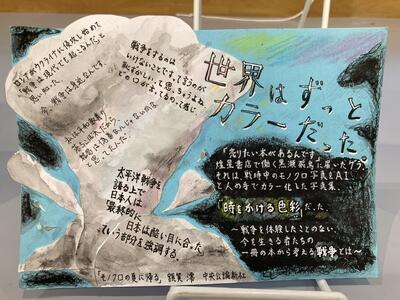 世界はずっと
カラーだった。
ロシアがウクライナに侵攻し始めて
「戦争は現代でも起こるんだ」と
思い知った。
今、戦争は身近なんです。
戦争をするのは
いけないことですって言うのが
恥ずかしいって思っちゃうよね
どの口が言ってるのって感じ
太平洋戦争を
語る上で
日本人は
最終的に
日本は酷い目に合った
っていう部分を強調する。
「売りたい本があるんです。」
書店で働く黒瀬
に届いたゲラ。
それは、戦時中のモノクロ写真をAIと
人の手でカラー化した写真集、
「時をかける色彩」だった。
～戦争を体験したことのない
今を生きる者たちの
一冊の本から考える戦争とは～
『モノクロの夏に帰る』額賀 澪 中央公論新社